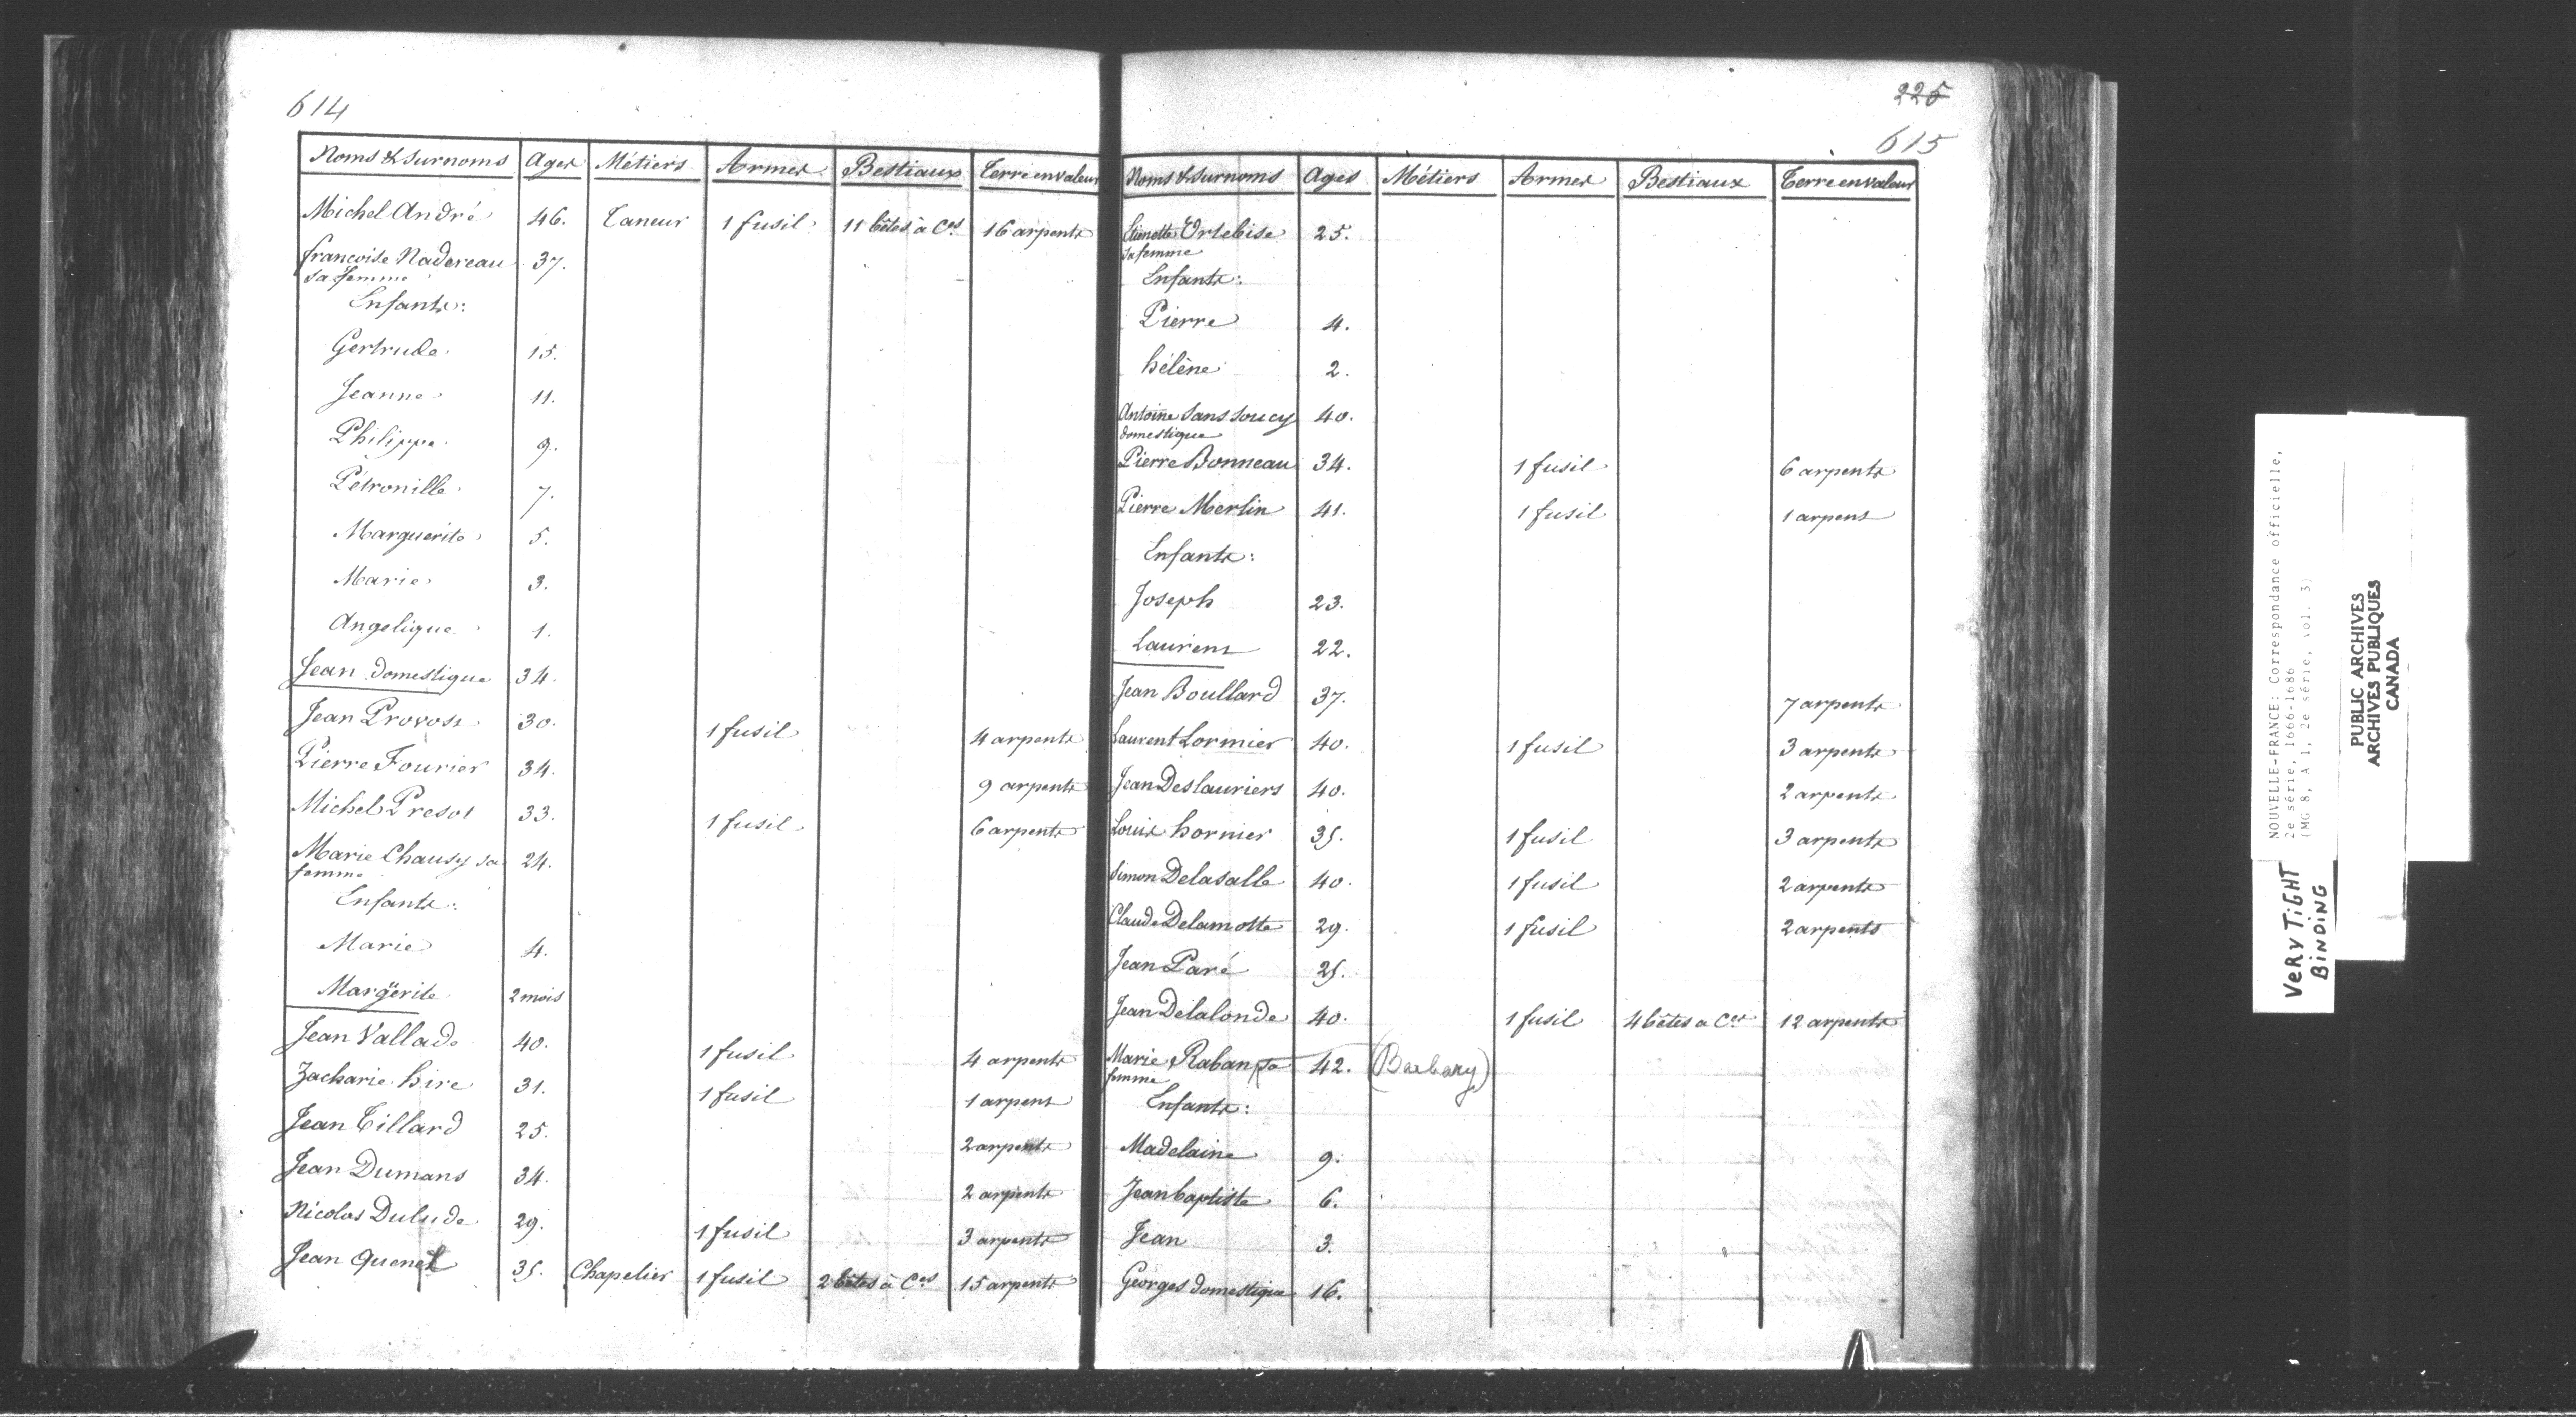 614
Noms & Surnoms Ages Métiers Armes Bestiaux Terre en valeur
Michel André 46. Taneur 1 fusil 11 bêtes à C.es 16 arpents
francoise Nadereau 37.
sa femme
Enfants:
Gertrude 15.
Jeanne 11.
Philippe 9.
Pétronille 7.
Marguerite 5.
Marie 3.
Angelique 1.
Jean domestique 34.
Jean Provost 30. 1 fusil 4 arpents
Pierre Fourier 34. 9 arpents
Michel Presot 33. 1 fusil 6 arpents
Marie Chausy sa 24.
femme
Enfants:
Marie 4.
Margüerite 2 mois
Jean Vallade 40. 1 fusil 4 arpents
Zacharie hire 31. 1 fusil 1 arpent
Jean Tillard 25. 2 arpents
Jean Dumans 34. 2 arpents
Nicolas Dulude 29. 1 fusil 3 arpents
Jean Quenet 35. Chapelier 1 fusil 2 bêtes à C.es 15 arpents
225
615
Noms & Surnoms Ages Métiers Armes Bestiaux Terre en valeur
Etienette Ortebise 25.
sa femme
Enfants:
Pierre 4.
hélène 2.
Antoine Sanssoucy 40.
domestique
Pierre Bonneau 34. 1 fusil 6 arpents
Pierre Merlin 41. 1 fusil 1 arpent
Enfants:
Joseph 23.
Laurent 22.
Jean Boullard 37. 7 arpents
Laurent Lormier 40. 1 fusil 3 arpents
Jean Deslauriers 40. 2 arpents
Louis hornier 35. 1 fusil 3 arpents
Simon Delasalle 40. 1 fusil 2 arpents
Claude Delamotte 29. 1 fusil 2 arpents
Jean Paré 25.
Jean Delalonde 40. 1 fusil 4 bêtes a C.es 12 arpents
Marie Raban sa 42. (Barbary)
femme
Enfants:
Madelaine 9.
Jean baptiste 6.
Jean 3.
Georges domestique 16.
NOUVELLE-FRANCE: Correspondance officielle,
2e série, 1666-1686
(MG 8, A 1, 2e série, vol. 3)
VERY TiGHT
BiNDiNG
PUBLIC ARCHIVES
ARCHIVES PUBLIQUES
CANADA